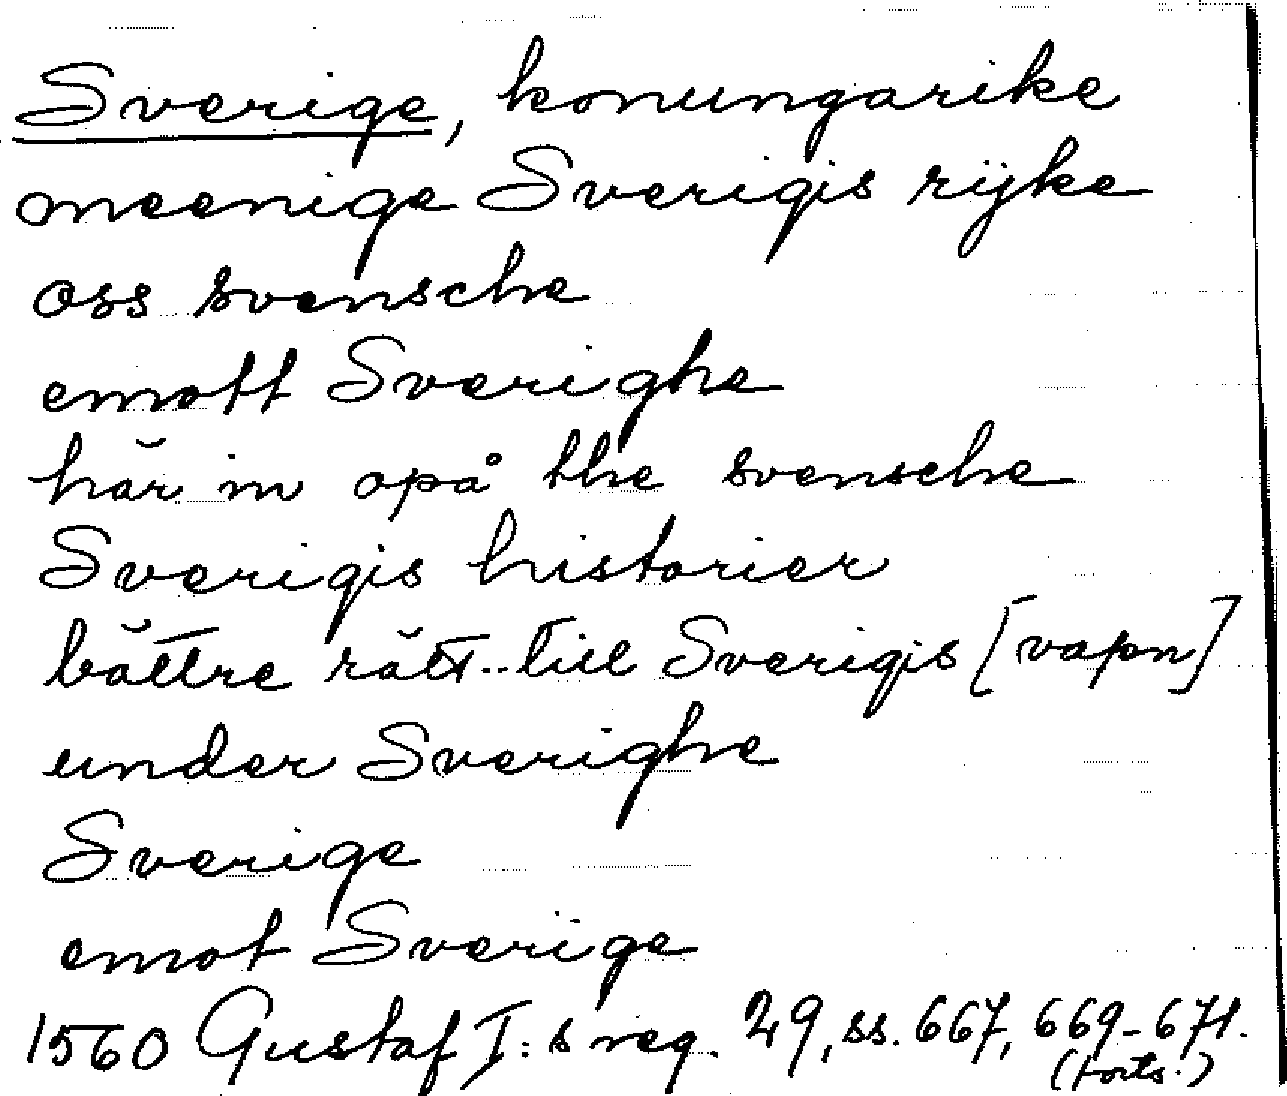 Sverige, konungarike
meenige Sverigis rijke
oss svensche
emott Sverighe
här in opå the svensche
Sverigis historier
bättre rätt.. till Sverigis [vapn]
under Sverighe
Sverige
emot Sverige
1560 Gustaf I:s reg. 29, ss. 667, 669-671.
(forts.)